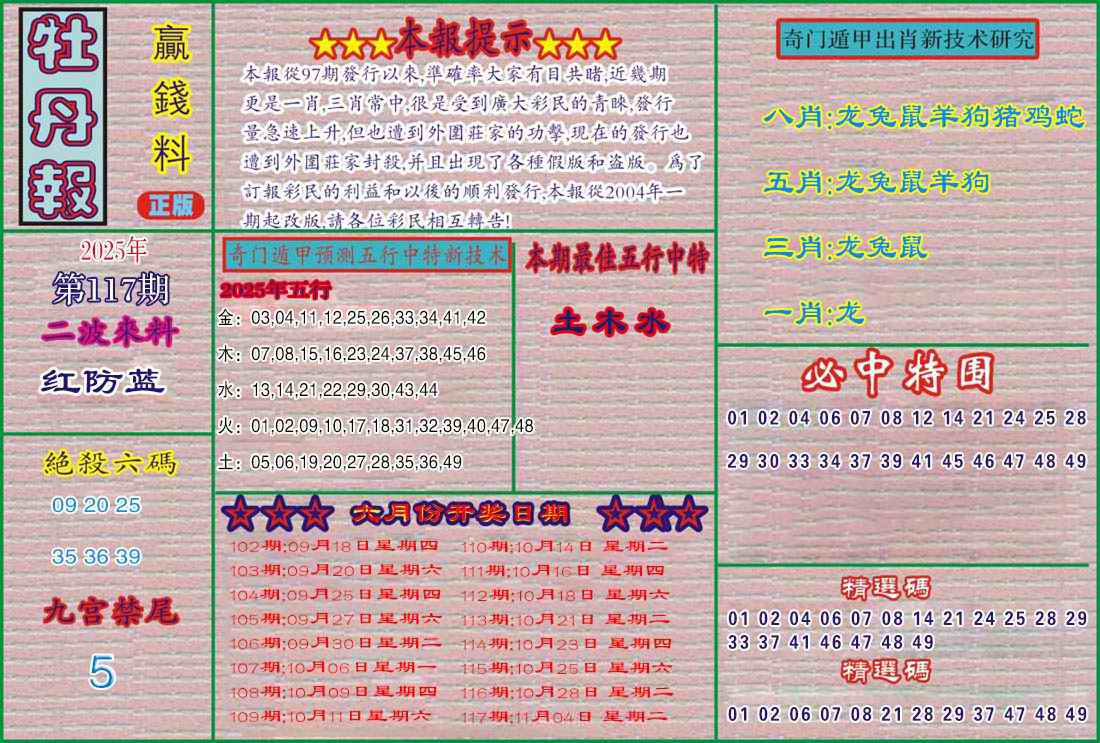 牡丹報
贏錢料
正版
2025年
第117期
二波來料
红防蓝
絕殺六碼
09 20 25
35 36 39
九宫禁尾
5
★★★本報提示★★★
本報從97期發行以來,準確率大家有目共睹,近幾期
更是一肖,三肖常中,很是受到廣大彩民的青睞,發行
量急速上升,但也遭到外圍莊家的功擊,現在的發行也
遭到外圍莊家封殺,并且出現了各種假版和盗版。爲了
訂報彩民的利益和以後的順利發行,本報從2004年一
期起改版,請各位彩民相互轉告!
奇门遁甲预测五行中特新技术
2025年五行
金：03,04,11,12,25,26,33,34,41,42
木：07,08,15,16,23,24,37,38,45,46
水：13,14,21,22,29,30,43,44
火：01,02,09,10,17,18,31,32,39,40,47,48
土：05,06,19,20,27,28,35,36,49
本期最佳五行中特
土木水
六月份开奖日期
102期;09月18日星期四
103期;09月20日星期六
104期;09月25日星期四
105期;09月27日星期六
106期;09月30日星期二
107期;10月06日星期一
108期;10月09日星期四
109期;10月11日星期六
110期;10月14日 星期二
111期;10月16日 星期四
112期;10月18日 星期六
113期;10月21日 星期二
114期;10月23日 星期四
115期;10月25日 星期六
116期;10月28日 星期二
117期;11月04日 星期二
奇门遁甲出肖新技术研究
八肖:龙兔鼠羊狗猪鸡蛇
五肖:龙兔鼠羊狗
三肖:龙兔鼠
一肖:龙
必中特围
01 02 04 06 07 08 12 14 21 24 25 28
29 30 33 34 37 39 41 45 46 47 48 49
精選碼
01 02 04 06 07 08 14 21 24 25 28 29
33 37 41 46 47 48 49
精選碼
01 02 06 07 08 21 28 29 37 47 48 49